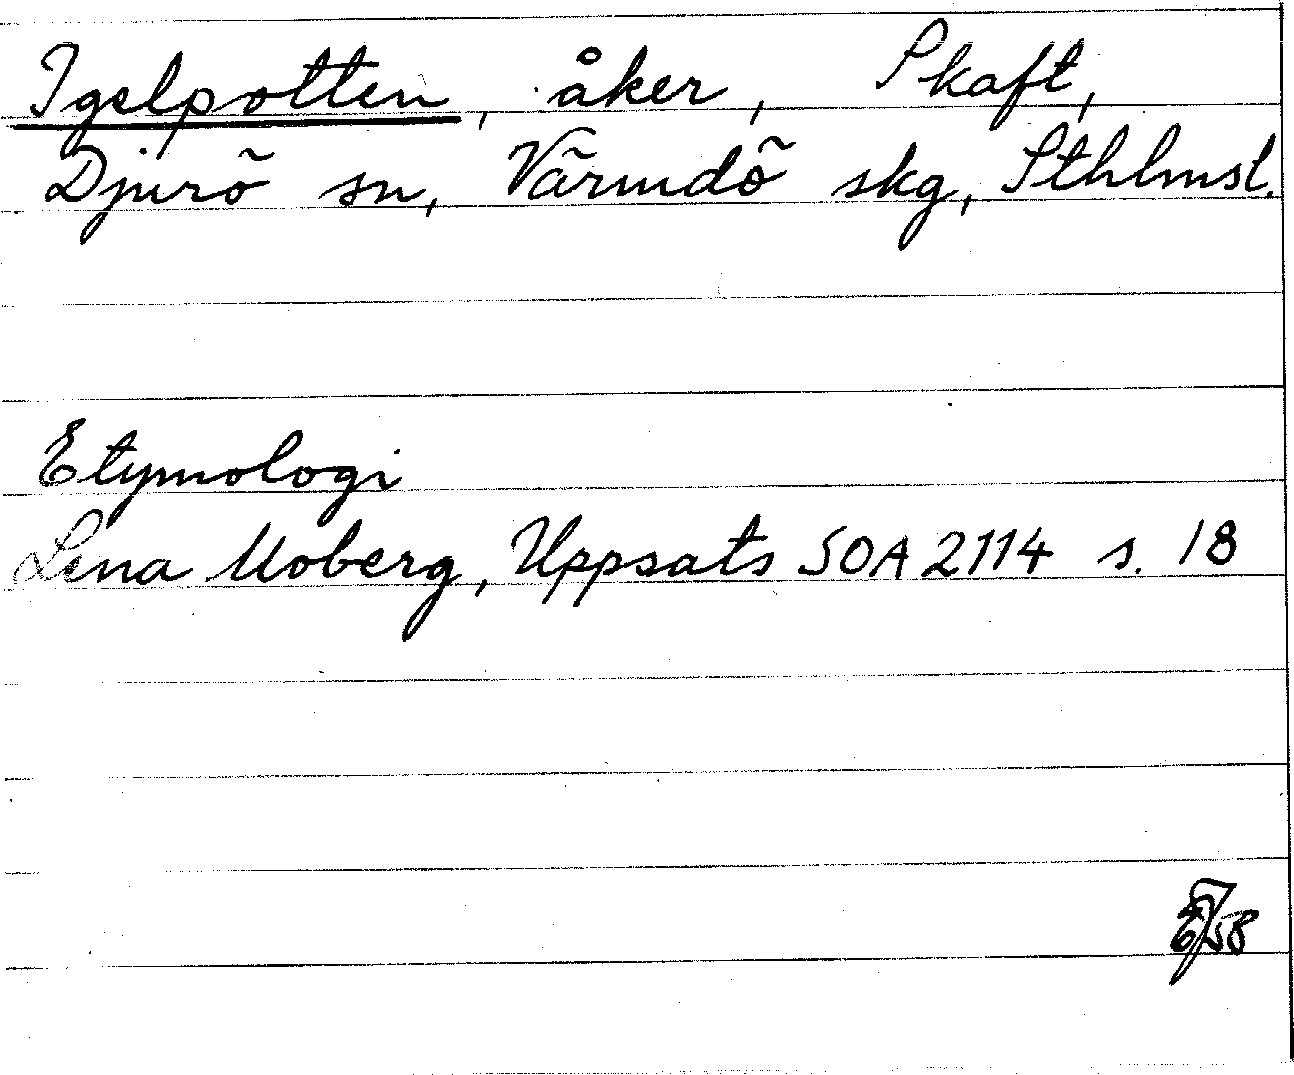 Igelpotten, åker, Skaft,
Djurö sn, Värmdö skg, Sthlmsl.
Etymologi
Lena Moberg, Uppsats SOA 2114 s. 18